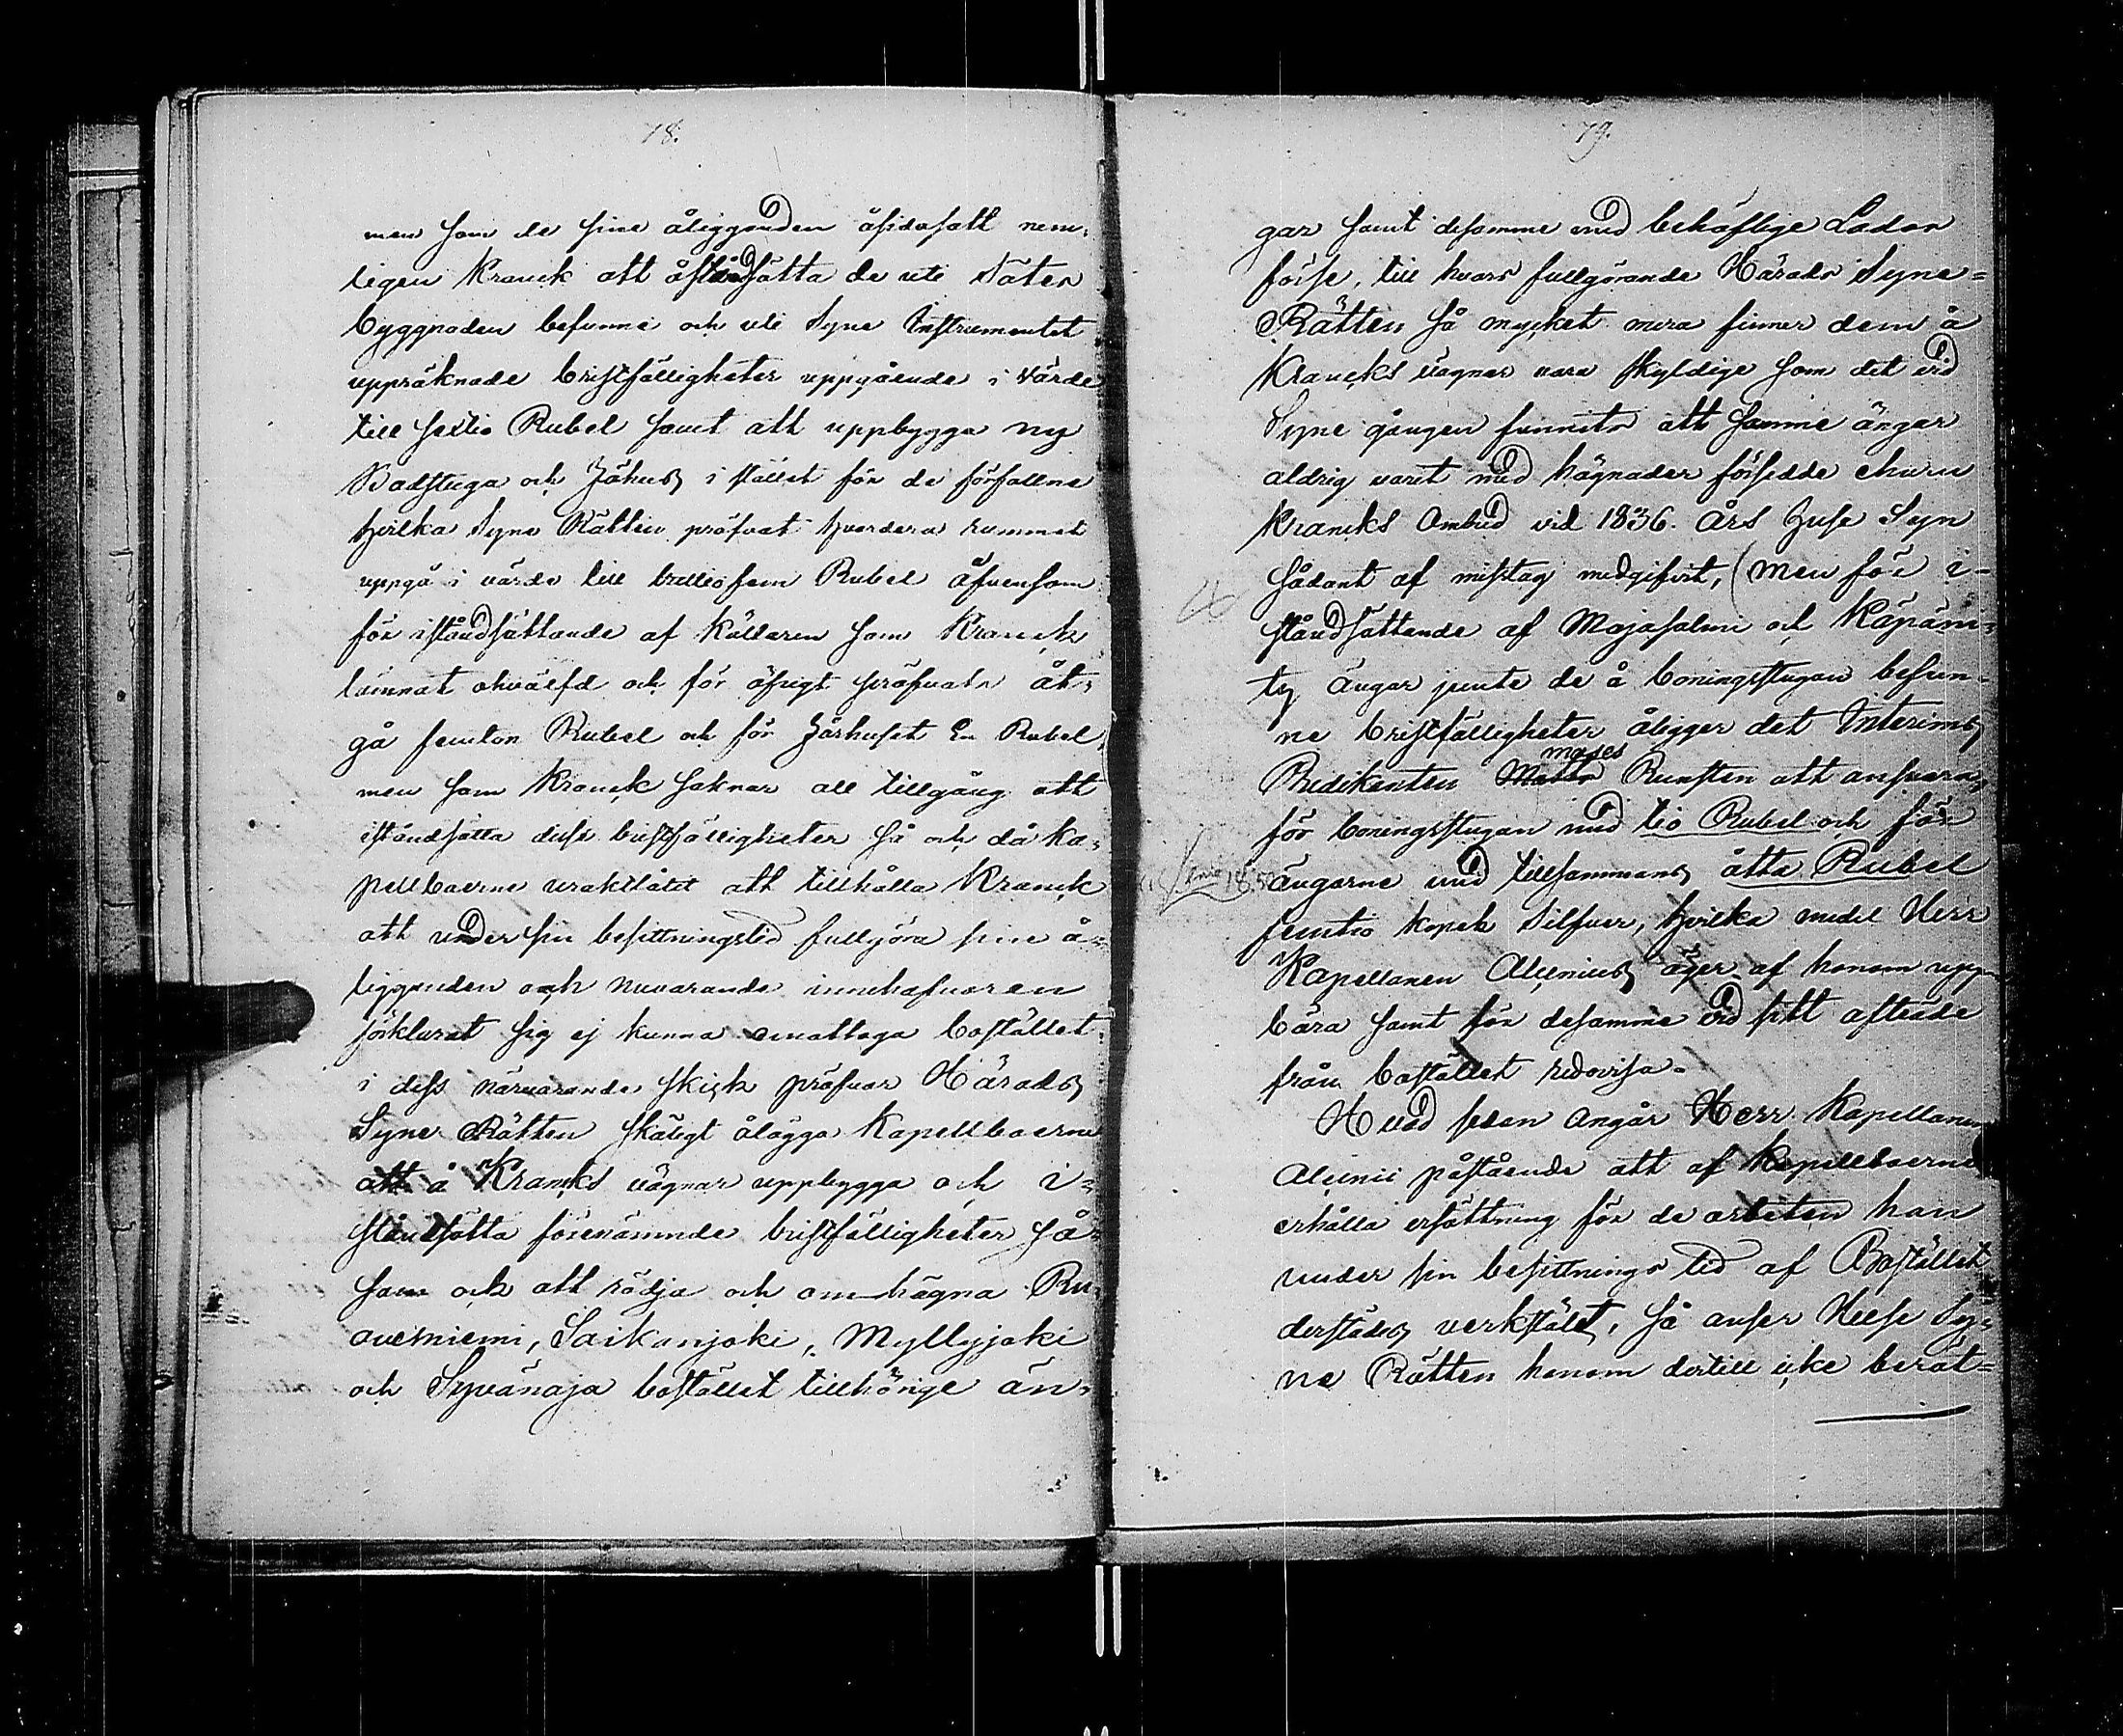 78.
men som de sine åligganden åsidosatt nem,
ligen Kranck att iståndsätta de uti Säters
byggnaden befunne och uti Syne Instrumentet
uppräknade bristfälligheter uppgående i värde
till sextio Rubel samt att uppbygga ny
Badstuga och Fähus i stället för de förfallne
hvilka Syne Rätten pröfvat hvardera rummet
uppgå i värde till trettiofem Rubel äfvensom
för iståndsättande af Källaren som Kranck
lämnat ohvälfd och för öfrigt pröfvats åt,
gå femton Rubel och för Fårhuset En Rubel
men som Kranck saknar all tillgång att
iståndsätta dessa bristfälligheter så och då Ka,
pellboerne uraktlåtit att tillhålla Kranck
att under sin besittningstid fullgöra sine å-
ligganden och nuvarande innehafvaren
förklarat sig ej kunna emottaga bostället
i dess närvarande skick pröfvar Härads
Syne Rätten skäligt ålägga Kapellboerne
att å Krancks vägnar uppbygga och i-
ståndsätta förenämnde bristfälligheter så-
som och att rödja och om hägna Ru,
onesniemi, Saikanjoki, Myllyjoki
och Syvänoja bostället tillhörige än,
79.
gar samt desamme med behöflige Lador
förse, till hvars fullgörande Härads Syne-
Rätten så mycket mera finner dem å
Krancks vägnar vara skyldige som det vid
Syne gången funnits att samme ängar
aldrig varit med hägnader försedde ehuru
Krancks Ombud vid 1836. Års Huse Syn
sådant af misstag medgifvit, (Men för i-
ståndsättande af Majasalmi och Käpäm-
ty ängar jemte de å boningsstugan befun-
ne bristfälligheter åligger det Interims
moses
Predikanten Runsten att ansvara
för boningsstugan med tio Rubel och för
ängarne med tillsammans åtta Rubel
femtio kopek Silfver, hvilka medel Herr
Kapellanen Alcenius äger af honom upp-
bära samt för desamme vid sitt afträde
från bostället redovisa.
Hvad sedan angår Herr Kapellanen
Alcenii påstående att af Kapellboerne
erhålla ersättning för de arbeten han
under sin besittnings tid af Bostället
derstädes verkstält, så anser Huse Sy-
ne Rätten honom dertill icke berät-